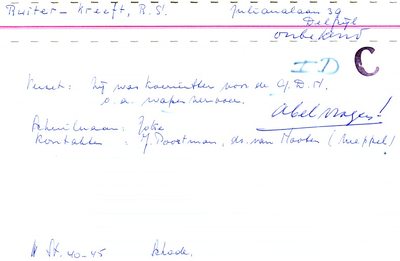 Ruiter-Kreeft, R.S. Julianalaan 39
Delfzijl
onbekend
ID C
Verzet: Zij was koerierster voor de O.D.N.
o.a. wapenvervoer.
Abel vragen!
Schuilnaam: Joke
Kontakten: J. Poortman, ds. van Nooten (Meppel)
St. 40-45 Schade.